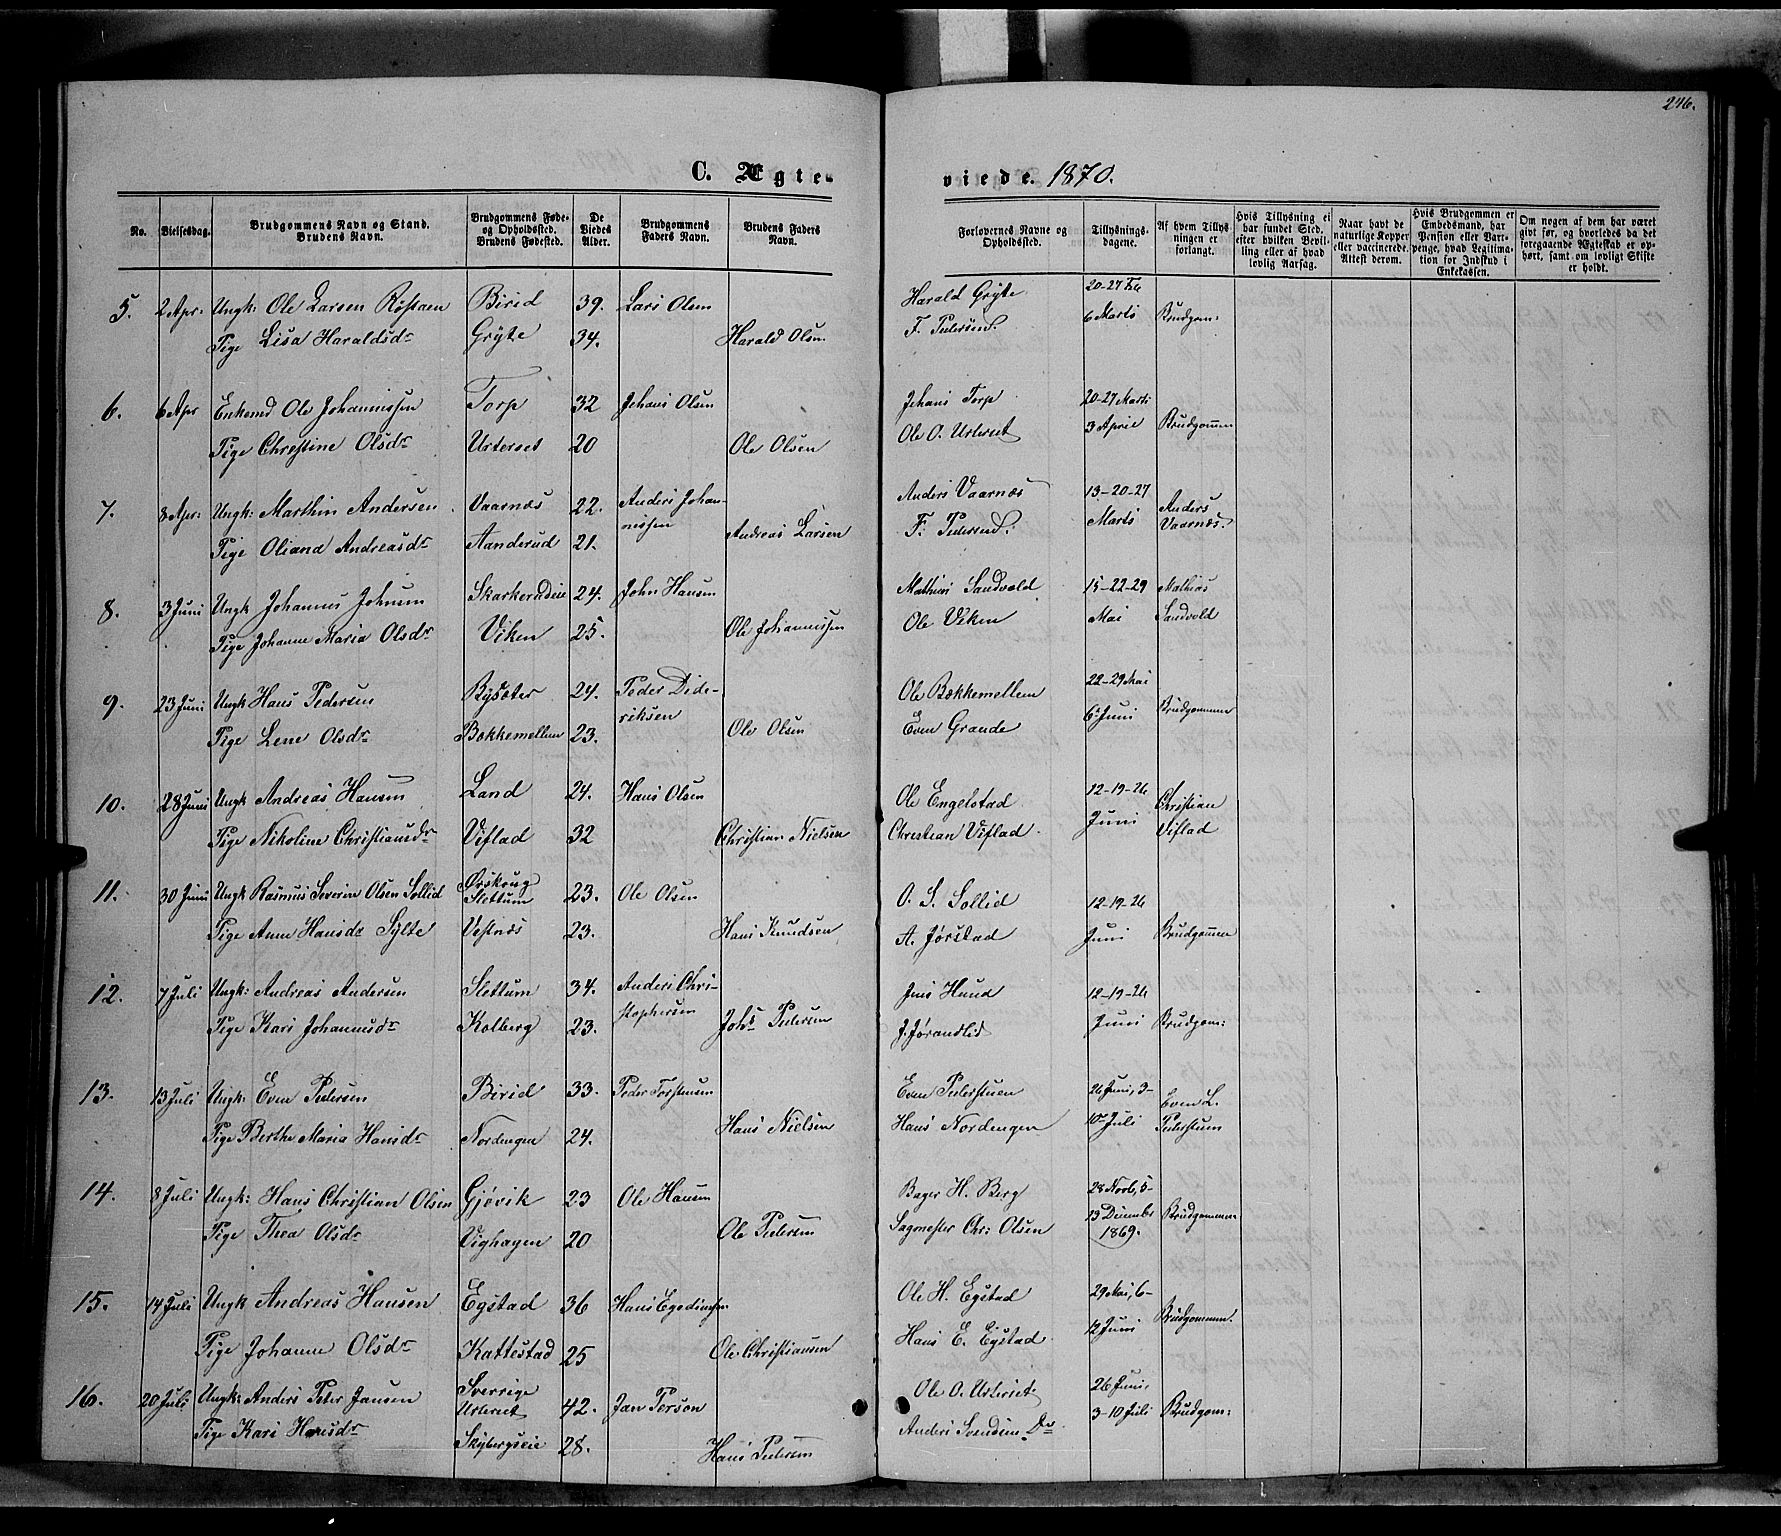 246.
C. Ægteviede. 1870.
No.
Vielsesdag.
Brudgommens Navn og Stand.
Brudens Navn.
Brudgommens Føde-
og Opholdssted.
Brudens Fødested.
De
Viedes
Alder.
Brudgommens
Faders Navn.
Brudens Faders
Navn.
Forlovernes Navne og
Opholdssted.
Tillysnings-
dagene.
Af hvem Tillys-
ningen er
forlangt.
Hvis Tillysning ei
har fundet Sted,
efter hvilken Bevil-
ling eller af hvad
lovlig Aarsag.
Naar havt de
naturlige Kopper
eller vaccinerede.
Attest derom.
Hvis Brudgommen er
Embedsmand, har
Pension eller Vart-
penge, hvad Legitima-
tion for Indskud i
Enkekassen.
Om nogen af dem har været
givt før, og hvorledes da det
foregaaende Ægteskab er op-
hørt, samt om lovligt Skifte
er holdt.
5. 2 Apr: Ungk: Ole Larsen Birid 39. Lars Olsen Harald Gryte 20-27 Feb
Pige Lisa Haraldsdr Gryte 34. Harald Olsen F. Pedersen 6 Marts Brudgom:
6. 6 Apr Enkemd Ole Johannissen Torp 32 Johans Olsen Johans Torp 20-27 Marts
Pige Christine Olsdr Urterset 20 Ole Olsen Ole O. Urterset 3 April Brudgommen
7. 8 Apr: Ungk: Marthin Andersen Vaarnæs 22. Anders Johan- Anders Vaarnæs 13-20-27 Anders
nissen
Pige Oliana Andreasdr Aanderud 21. Andreas Larsen F. Pedersen Marts Vaarnæs.
8. 3 Juni Ungk Johannes Johnsen Skarkerudeie 24. John Hansen Mathias Sandvold 15-22-29 Mathias
Pige Johanne Maria Olsdr Viken 25. Ole Johannissen Ole Viken Mai Sandvold
9. 23 Juni Ungk Hans Pedersen Bysæter 24. Peder Dide- Ole Bækkemellem 22-29 Mai
riksen
Pige Lene Olsdr Bækkemellem 23. Ole Olsen Even Grande 6 Juni Brudgommen
10. 28 Juni Ungk Andreas Hansen Land 24. Hans Olsen Ole Engelstad 12-19-26 Christian
Pige Nikoline Christiansdr Viflad 32 Christian Nielsen Christian Viflad Juni Viflad
11. 30 Juni Ungk Rasmus Severin Olsen Sollid Ørskoug
Slettum 23. Ole Olsen O. S. Sollid 12-19-26
Pige Anne Hansdr Sylte Vestnæs 23. Hans Knudsen A. Jørstad Juni Brudgommen
12. 7 Juli Ungk: Andreas Andersen Slettum 34. Anders Chri- Jens Hund 12-19-26
stophersen
Pige Kari Johannesdr Kolberg 23. Johs Pedersen J. Jørandlid Juni Brudgom:
13. 13 Juli Ungk: Even Pedersen Birid 33. Peder Torstensen Even Pederstuen 26 Juni, 3- Even L.
Pige Berthe Maria Hansdr Nordengen 24. Hans Nielsen Hans Nordengen 10 Juli Pederstuen
14. 8 Juli Ungk: Hans Christian Olsen Gjøvik 23 Ole Hansen Bager H. Berg 28 Novb, 5-
Pige Thea Olsdr Vighagen 20 Ole Pedersen Sagmester Chr: Olsen 13 Decembr Brudgommen
1869.
15. 14 Juli Ungk Andreas Hansen Egstad 36 Hans Egediussen Ole H. Egstad 29 Mai, 6-
Pige Johanne Olsdr Kattestad 25 Ole Christiansen Hans E. Egstad 12 Juni Brudgommen.
16. 20 Juli Ungk: Anders Peter Jansen Sverrige
Urterset 42. Jan Person Ole O. Urterset 26 Juni,
Pige Kari Hansdr Skybergseie 28. Hans Pedersen Anders Svendsen Do 3-10 Juli Brudgom: